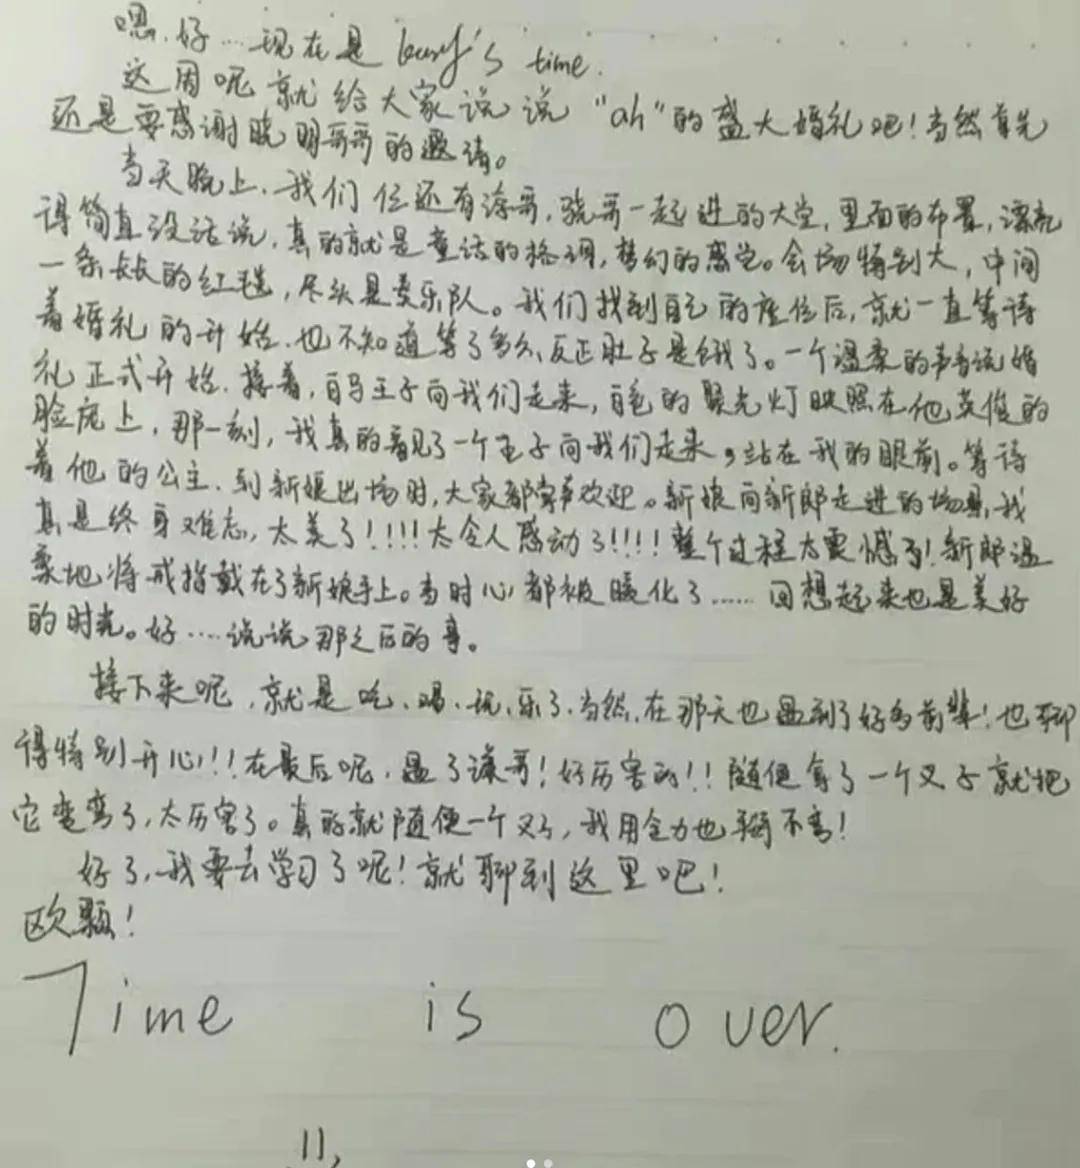 嗯.好…现在是 's time.
这周呢就给大家说说"ah"的盛大婚礼吧!当然首先
还是要感谢晓明哥哥的邀请。
当天晚上.我们仨还有涛哥,骁哥一起进的大堂,里面的布置,漂亮
得简直没话说,真的就是童话的格调,梦幻的感觉。会场特别大,中间
一条长长的红毯,尽头是奏乐队。我们找到自己的座位后,就一直等待
着婚礼的开始.也不知道等了多久、反正肚子是饿了。一个温柔的声音说婚
礼正式开始.接着,白马王子向我们走来,白色的聚光灯映照在他英俊的
脸庞上,那一刻,我真的看见了一个王子向我们走来,站在我的眼前。等待
着他的公主.到新娘出场时,大家都掌声欢迎。新娘向新郎走进的场景,我
真是终身难忘,太美了!!!!太令人感动了!!!!整个过程太震憾了!新郎温
柔地将戒指戴在了新娘手上。当时心都被暖化了……回想起来也是美好
的时光。好….说说那之后的事。
接下来呢,就是吃、喝、玩、乐了.当然,在那天也遇到了好多前辈!也聊
得特别开心!!在最后呢,遇了谦哥!好厉害的!!随便拿了一个叉子就把
它变弯了,太厉害了。真的就随便一个叉子,我用全力也掰不弯!
好了,我要去学习了呢!就聊到这里吧!
欧颗!
Time is over.